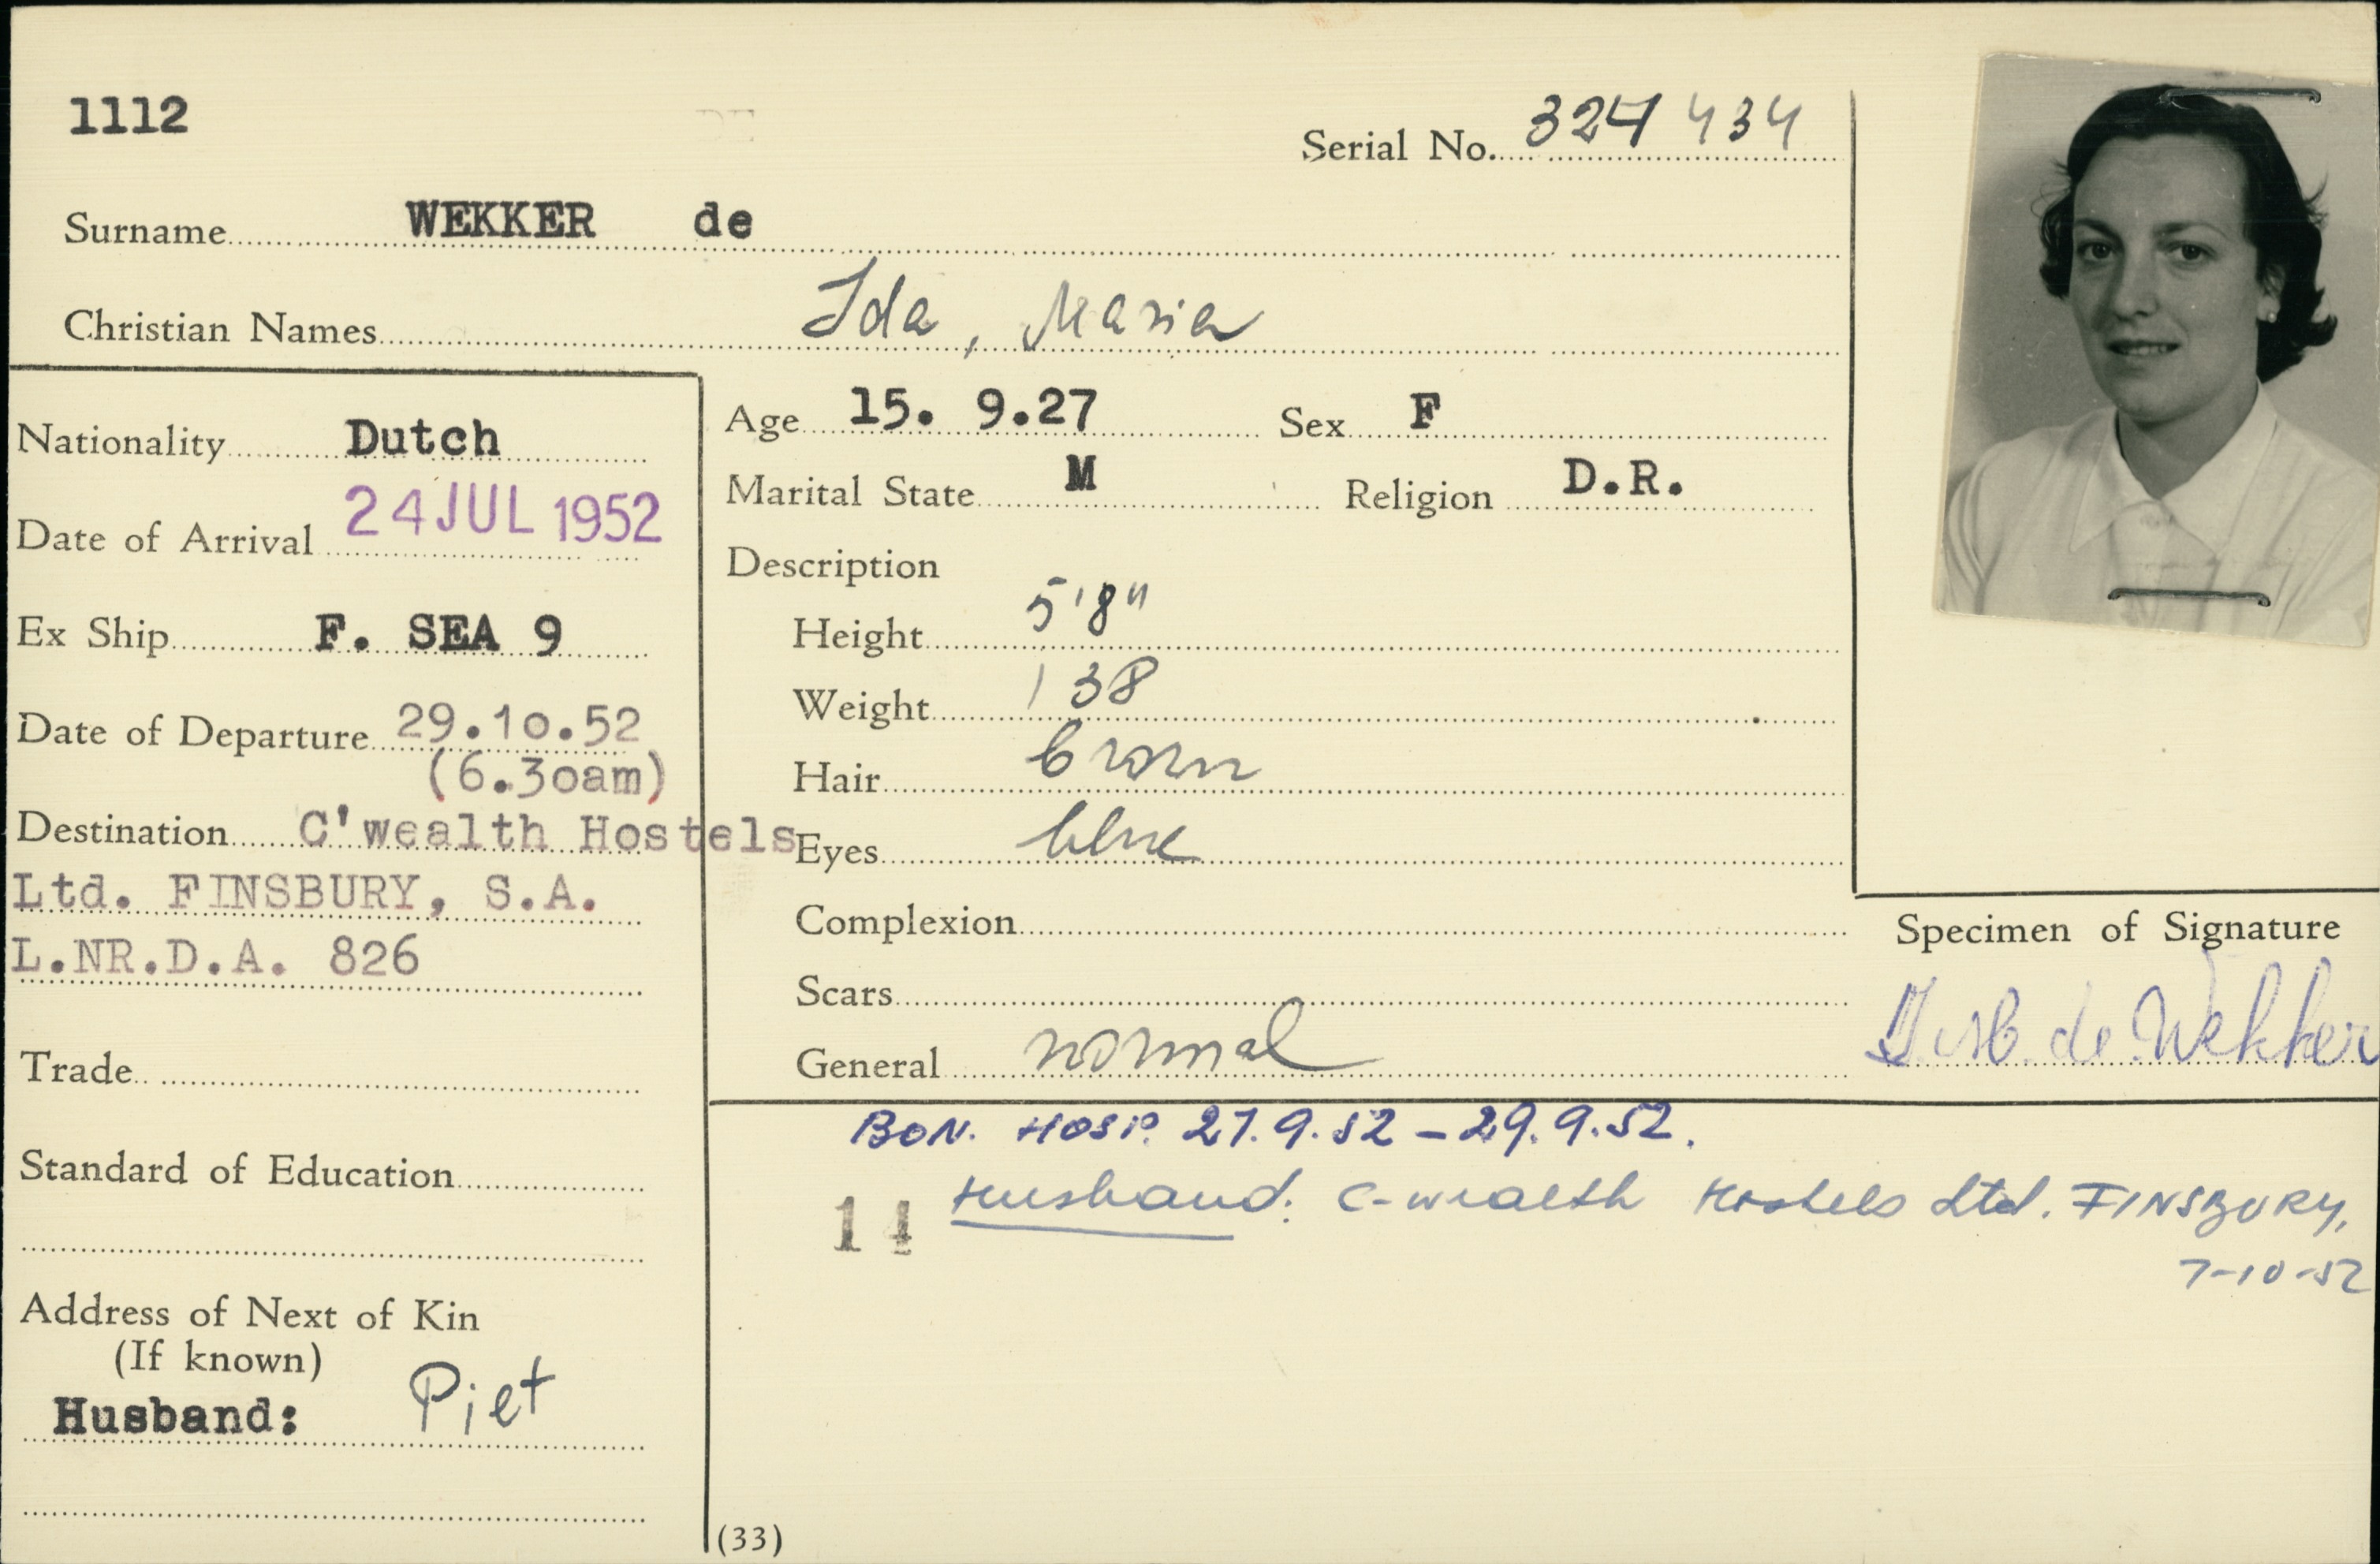 1112
Serial No. 324 434
Surname WEKKER de
Christian Names Ida, Maria
Nationality Dutch
Date of Arrival 24 JUL 1952
Ex Ship F. SEA 9
Date of Departure 29.10.52
(6.30am)
Destination C'wealth Hostels
Ltd. FINSBURY, S.A.
L.NR.D.A. 826
Trade
Standard of Education
Address of Next of Kin
(If known)
Husband: Piet
Age 15. 9.27 Sex F
Marital State M Religion D.R.
Description
Height 5'8"
Weight 138
Hair brown
Eyes blue
Complexion
Scars
General normal
Specimen of Signature
de Wekker
BON. HOSP. 27.9.52 – 29.9.52.
14 Husband: C-wealth Hostels Ltd. FINSBURY,
7-10-52
(33)